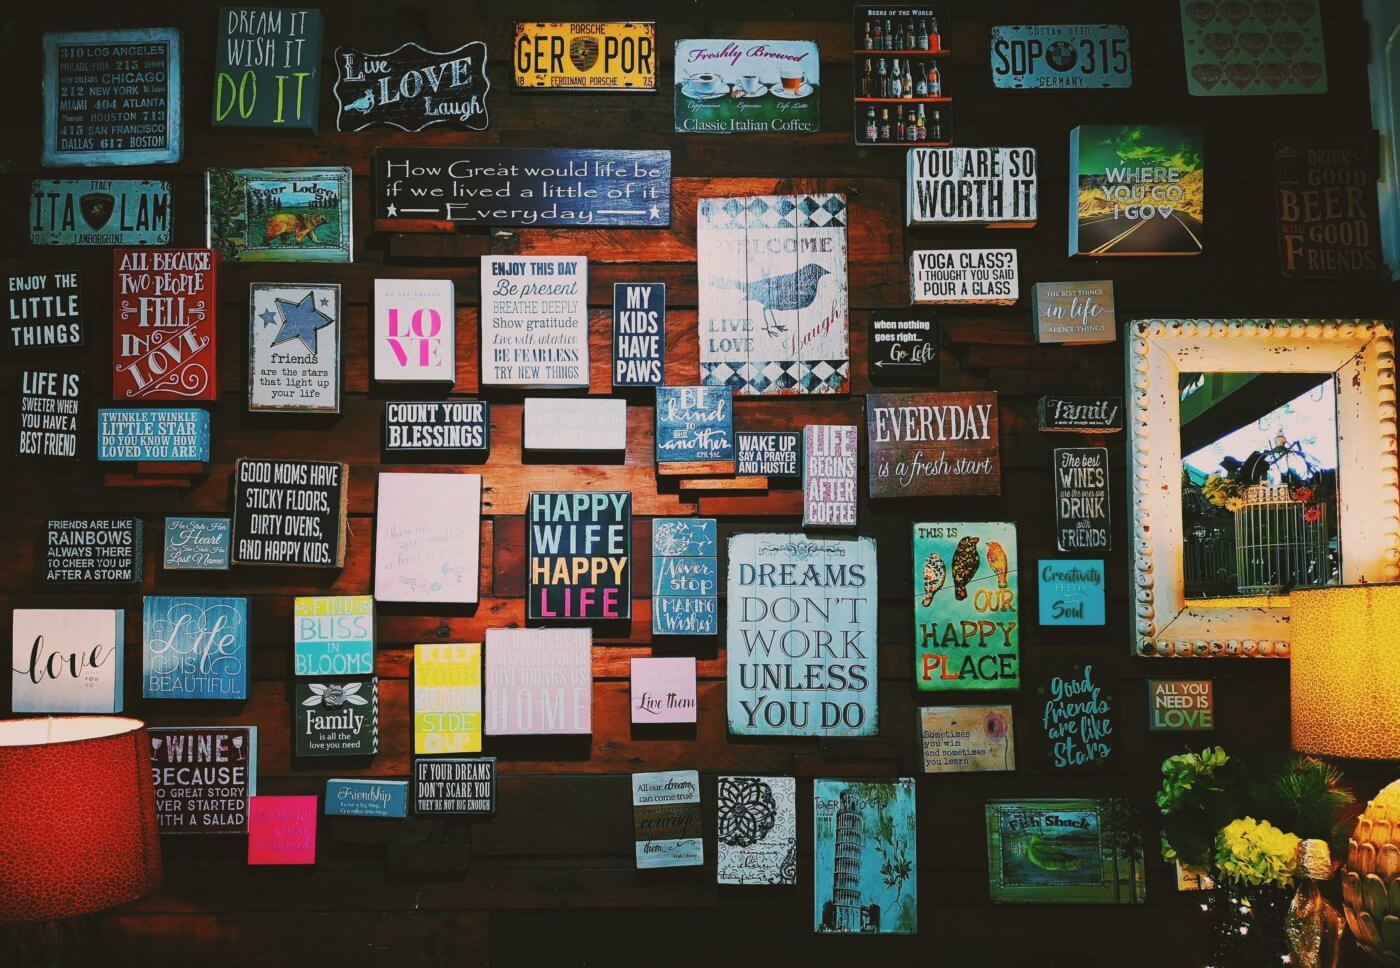 310 LOS ANGELES
PHILADELPHIA 215 DENVER
NEW ORLEANS CHICAGO
212 NEW YORK St. Louis
MIAMI 404 ATLANTA
Phoenix HOUSTON 713
415 SAN FRANCISCO
DALLAS 617 BOSTON
DREAM IT
WISH IT
DO IT
Live
LOVE
Laugh
PORSCHE
GER POR
FERDINAND PORSCHE
Freshly Brewed
Cappuccino Espresso Cafe Latte
Classic Italian Coffee
BEERS OF THE WORLD
GUSTAN OTTO
SDP 315
GERMANY
ITALY
ITA LAM
LAMBORGHINI
Bear Lodge
How Great would life be
if we lived a little of it
Everyday
YOU ARE SO
WORTH IT
WHERE
YOU GO
I GO
DRINK
GOOD
BEER
WITH GOOD
FRIENDS
ENJOY THE
LITTLE
THINGS
ALL BECAUSE
TWO PEOPLE
FELL
IN
LOVE
friends
are the stars
that light up
your life
DO ALL THINGS
LO
VE
ENJOY THIS DAY
Be present
BREATHE DEEPLY
Show gratitude
Live with intention
BE FEARLESS
TRY NEW THINGS
MY
KIDS
HAVE
PAWS
WELCOME
LIVE
LOVE
Laugh
YOGA CLASS?
I THOUGHT YOU SAID
POUR A GLASS
when nothing
goes right...
Go Left
THE BEST THINGS
in life
AREN'T THINGS
LIFE IS
SWEETER WHEN
YOU HAVE A
BEST FRIEND
TWINKLE TWINKLE
LITTLE STAR
DO YOU KNOW HOW
LOVED YOU ARE
COUNT YOUR
BLESSINGS
BE
kind
to
one
another
EPH. 4:32
WAKE UP
SAY A PRAYER
AND HUSTLE
LIFE
BEGINS
AFTER
COFFEE
EVERYDAY
is a fresh start
Family
The best
WINES
are the ones we
DRINK
with
FRIENDS
GOOD MOMS HAVE
STICKY FLOORS,
DIRTY OVENS,
AND HAPPY KIDS.
FRIENDS ARE LIKE
RAINBOWS
ALWAYS THERE
TO CHEER YOU UP
AFTER A STORM
He Stole Her
Heart
So She Stole His
Last Name
HAPPY
WIFE
HAPPY
LIFE
Never
stop
MAKING
Wishes
DREAMS
DON'T
WORK
UNLESS
YOU DO
THIS IS
OUR
HAPPY
PLACE
Creativity
FEEDS
THE
Soul
love
WHAT
YOU
DO
Life
IS
BEAUTIFUL
FIND
BLISS
IN
BLOOMS
KEEP
YOUR
SUNNY
SIDE
UP
LOVE BRINGS US
HOME
Live them
Family
is all the
love you need
Sometimes
you win
and sometimes
you learn
Good
friends
are like
Stars
ALL YOU
NEED IS
LOVE
WINE
BECAUSE
NO GREAT STORY
EVER STARTED
WITH A SALAD
Friendship
IF YOUR DREAMS
DON'T SCARE YOU
THEY'RE NOT BIG ENOUGH
All our dreams
can come true
if we have the
courage
to pursue
them.
Walt Disney
Fish Shack